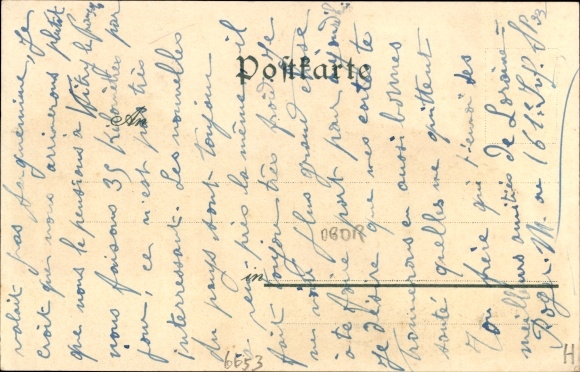 Postkarte
An
in
valait pas Sarguemine, Je
crois que nous arriverons plutôt
que nous le pensions à Vitry le français
nous faisons 35 kilomètres par
jour, ce n'est pas très
interressant. Les nouvelles
du pays sont toujours
à peu près la même, il
fait toujours très froid. Je
ne vois plus grand chose
à te dire pour aujourd'hui
Je désire que mes cartes te
trouveras en aussi bonnes
santé quelles me quittent
Ton frère qui t'envoi ses
meilleurs amitiés de Lorraine
Roger M. au 161e Inf.
6653
H